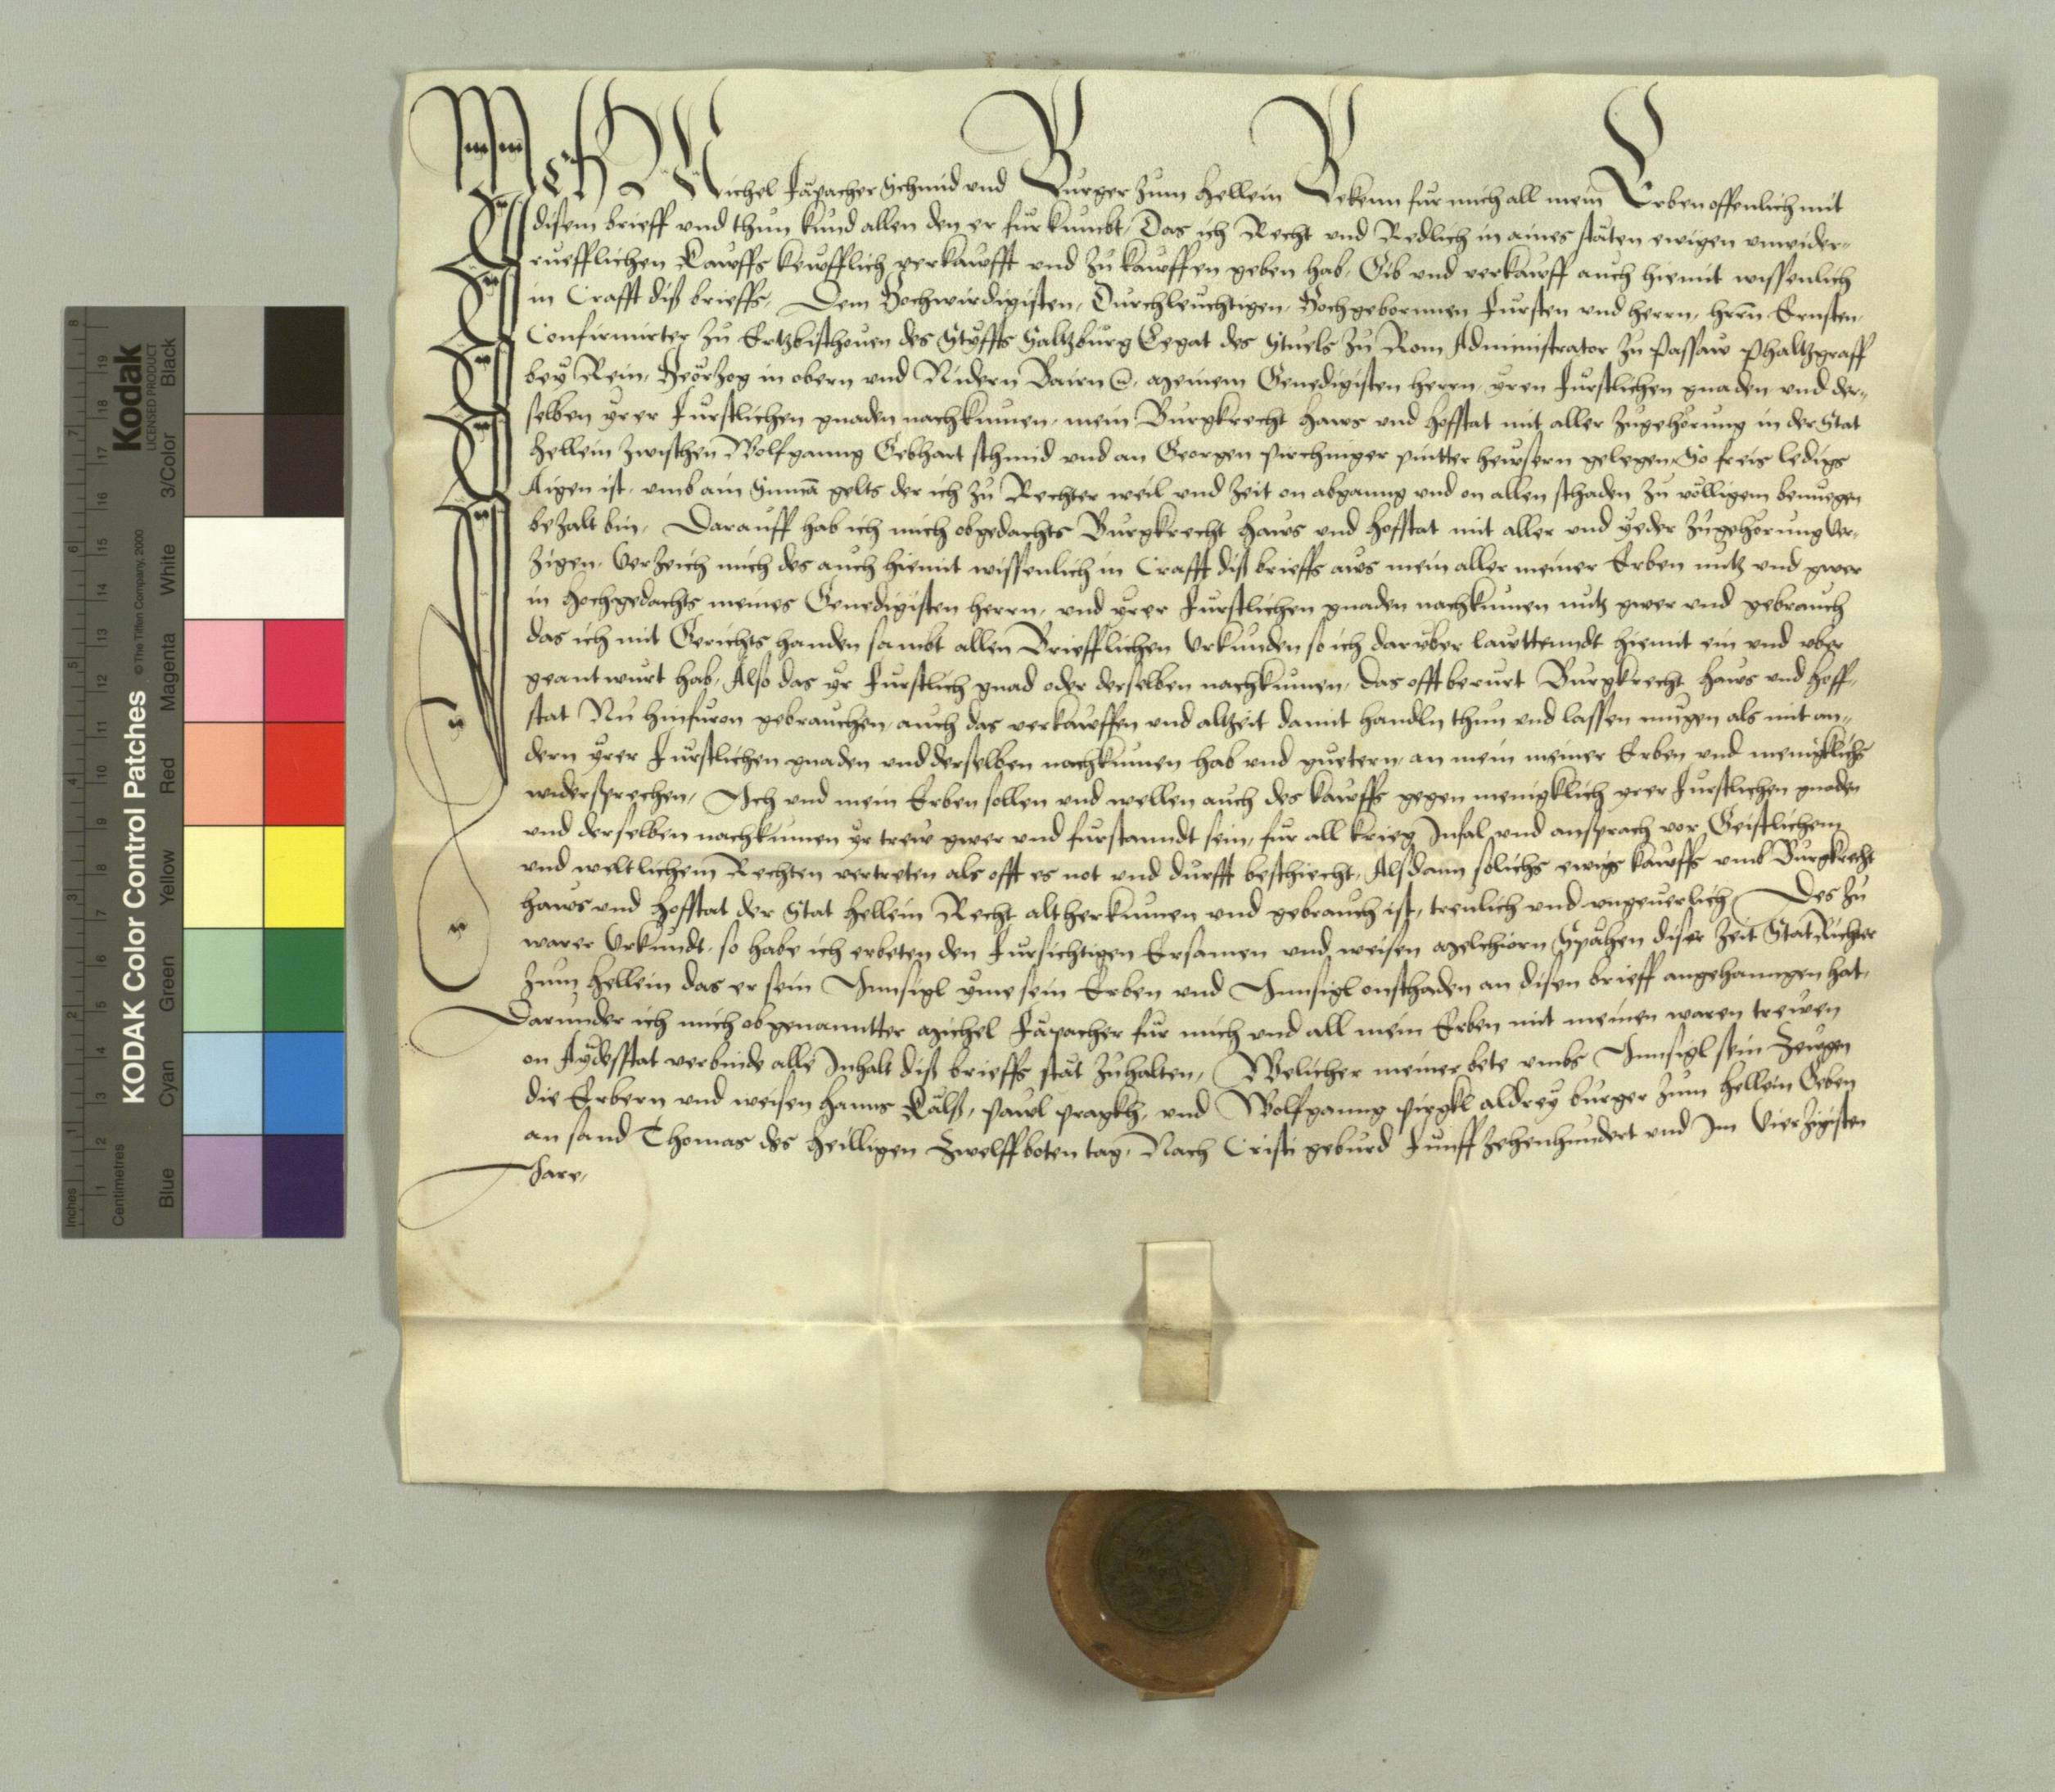 Ich Michel Säpacher Schmid vnd Burger zum Hellein Bekenn fur mich all mein Erben offenlich mit
disem brieff vnd thun kund allen den er fur kumbt, Das ich Recht vnd Redlich in aines stäten ewigen vnwider-
rueflichen Kauffs keufflich verkaufft vnd zu kauffen geben hab, Gib vnd verkauff auch hiemit wissenlich
in Crafft diß brieffs, Dem Hochwirdigisten, Durchleuchtigen, Hochgebornnen Fursten vnd herrn, hrñ Ernsten,
Confirmirter zu Ertzbischouen des Styffts Saltzburg Legat des Stuels zu Rom Administrator zu Passaw Phaltzgraff
bey Rein, Hertzog in obern vnd Nidern Bairn &, meinem Genedigisten herrn, yren furstlichen gnaden vnd der-
selben yrer furstlichen gnaden nachkumen, mein Burgkrecht haws vnd hofstat mit aller zugehorung in der Stat
Hellein zwischen Wolfganng Gebhart schmid vnd an Georgen pirchinger pintter heusern gelegen, So freis ledigs
Aigen ist, vmb ain Sumā gelts der ich zu Rechter weil vnd zeit on abganng vnd on allen schaden zu völligem benuegen
bezalt bin, Darauff hab ich mich obgedachts Burgkrecht haws vnd hofstat mit aller vnd yeder zugehorung Ver-
zigen, Verzeich mich des auch hiemit wissenlich in Crafft diß brieffs aus mein aller meiner Erben nutz vnd gwer
in hochgedachts meines Genedigisten herrn, vnd yrer furstlichen gnaden nachkumen nutz gwer vnd gebrauch
das ich mit Gerichts handen sambt allen Briefflichen Vrkunden so ich daruber lauttenndt hiemit ein vnd vber
geantwurt hab, Also das yr furstlich gnad oder derselben nachkumen, das offt berurt Burgkrecht haws vnd hoff-
stat Nu hinfuron gebrauchen, auch das verkauffen vnd altzeit damit handln thun vnd lassen mugen als mit an-
dern yrer furstlichen gnaden vnd derselben nachkumen hab vnd guetern, an mein meiner Erben vnd menigklichs
widersprechen, Ich vnd mein Erben sollen vnd wellen auch des kauffs gegen menigklich yrer furstlichen gnaden
vnd derselben nachkumen yr trew gwer vnd furstanndt sein, fur all krieg Infal vnd ansprach vor Geistlichem
vnd weltlichem Rechten vertreten als offt es not vnd durfft beschiecht, Alsdann solichs ewigs kauffs vmb Burgkrecht
haws vnd hofstat der Stat Hellein Recht altherkumen vnd gebrauch ist, treulich vnd vngeuerlich, Des zu
warer Vrkundt, so habe ich erbeten den fursichtigen Ersamen vnd weisen Melchiorn Spähen diser zeit Stat Richter
zum Hellein das er sein Innsigl yme sein Erben vnd Innsigl onschaden an disen brieff angehanngen hat,
Darunder ich mich obgenanntter Michel Säpacher fur mich vnd all mein Erben mit meinen waren trewen
on Aydesstat verbinde alle Inhalt diß brieffs stät zuhalten, Welicher meiner bete vmbs Innsigl sein Zeugen
die Erbern vnd weisen Hanns Kälß, Pawl Pragkh, vnd Wolfganng Piegkl aldrey burger zum Hellein Geben
an sand Thomas des heilligen Zwelffboten tag, Nach Cristi geburd Funffzehenhundert vnd Im Vierzigisten
Jare,
Kodak
LICENSED PRODUCT
KODAK Color Control Patches
© The Tiffen Company, 2000
Blue Cyan Green Yellow Red Magenta White 3/Color Black
Inches 1 2 3 4 5 6 7 8
Centimetres 1 2 3 4 5 6 7 8 9 10 11 12 13 14 15 16 17 18 19